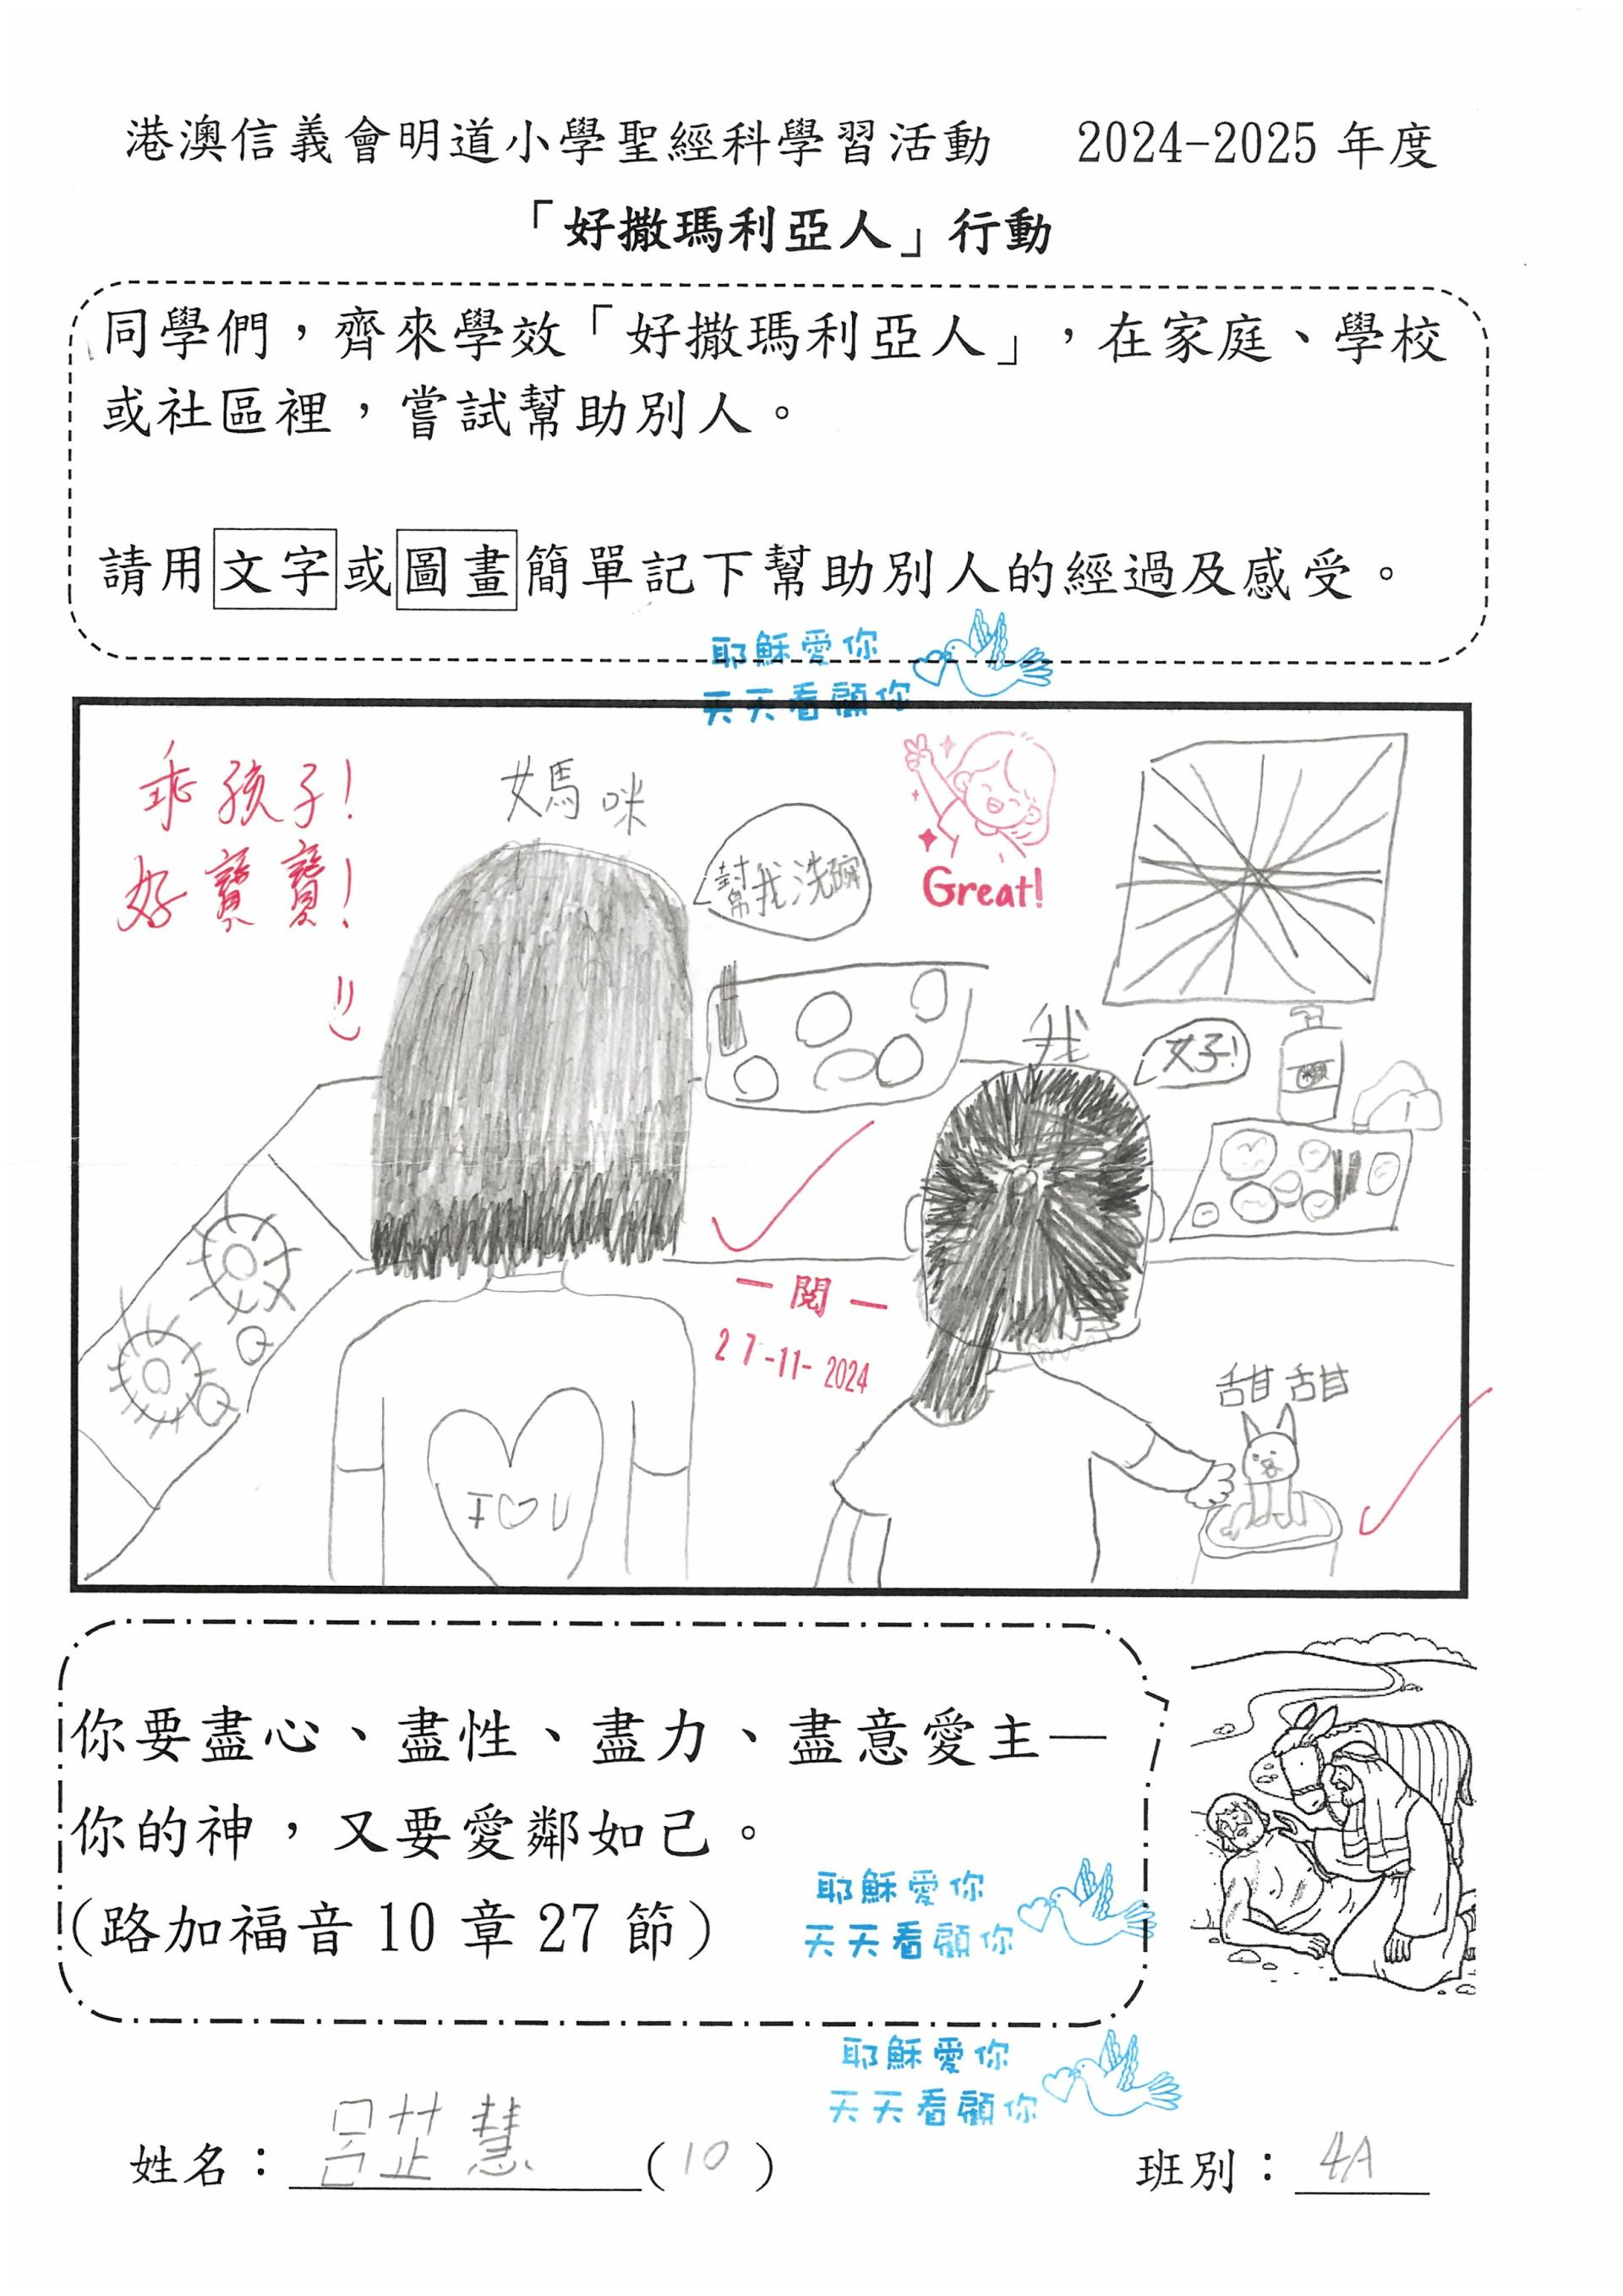 港澳信義會明道小學聖經科學習活動 2024-2025 年度
「好撒瑪利亞人」行動
同學們，齊來學效「好撒瑪利亞人」，在家庭、學校
或社區裡，嘗試幫助別人。
請用文字或圖畫簡單記下幫助別人的經過及感受。
耶穌愛你
天天看顧你
乖孩子!
好寶寶!
媽咪
幫我洗碗
Great!
我
好!
一閱一
27-11-2024
甜甜
I♡U
你要盡心、盡性、盡力、盡意愛主—
你的神，又要愛鄰如己。
(路加福音 10 章 27 節)
耶穌愛你
天天看顧你
耶穌愛你
天天看顧你
姓名：呂芷慧(10) 班別：4A